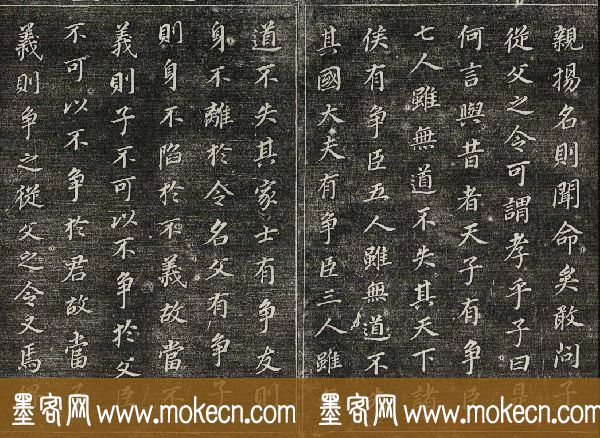 親揚名則聞命矣敢問子
從父之令可謂孝乎子曰是
何言與昔者天子有争臣
七人雖無道不失其天下諸
侯有争臣五人雖無道不
其國大夫有争臣三人雖
道不失其家士有争友則
身不離於令名父有争子
則身不陷於不義故當不
義則子不可以不争於父臣
不可以不争於君故當
義則争之從父之令又焉
墨客网 www.mokecn.com
墨客网 www.mokecn.com